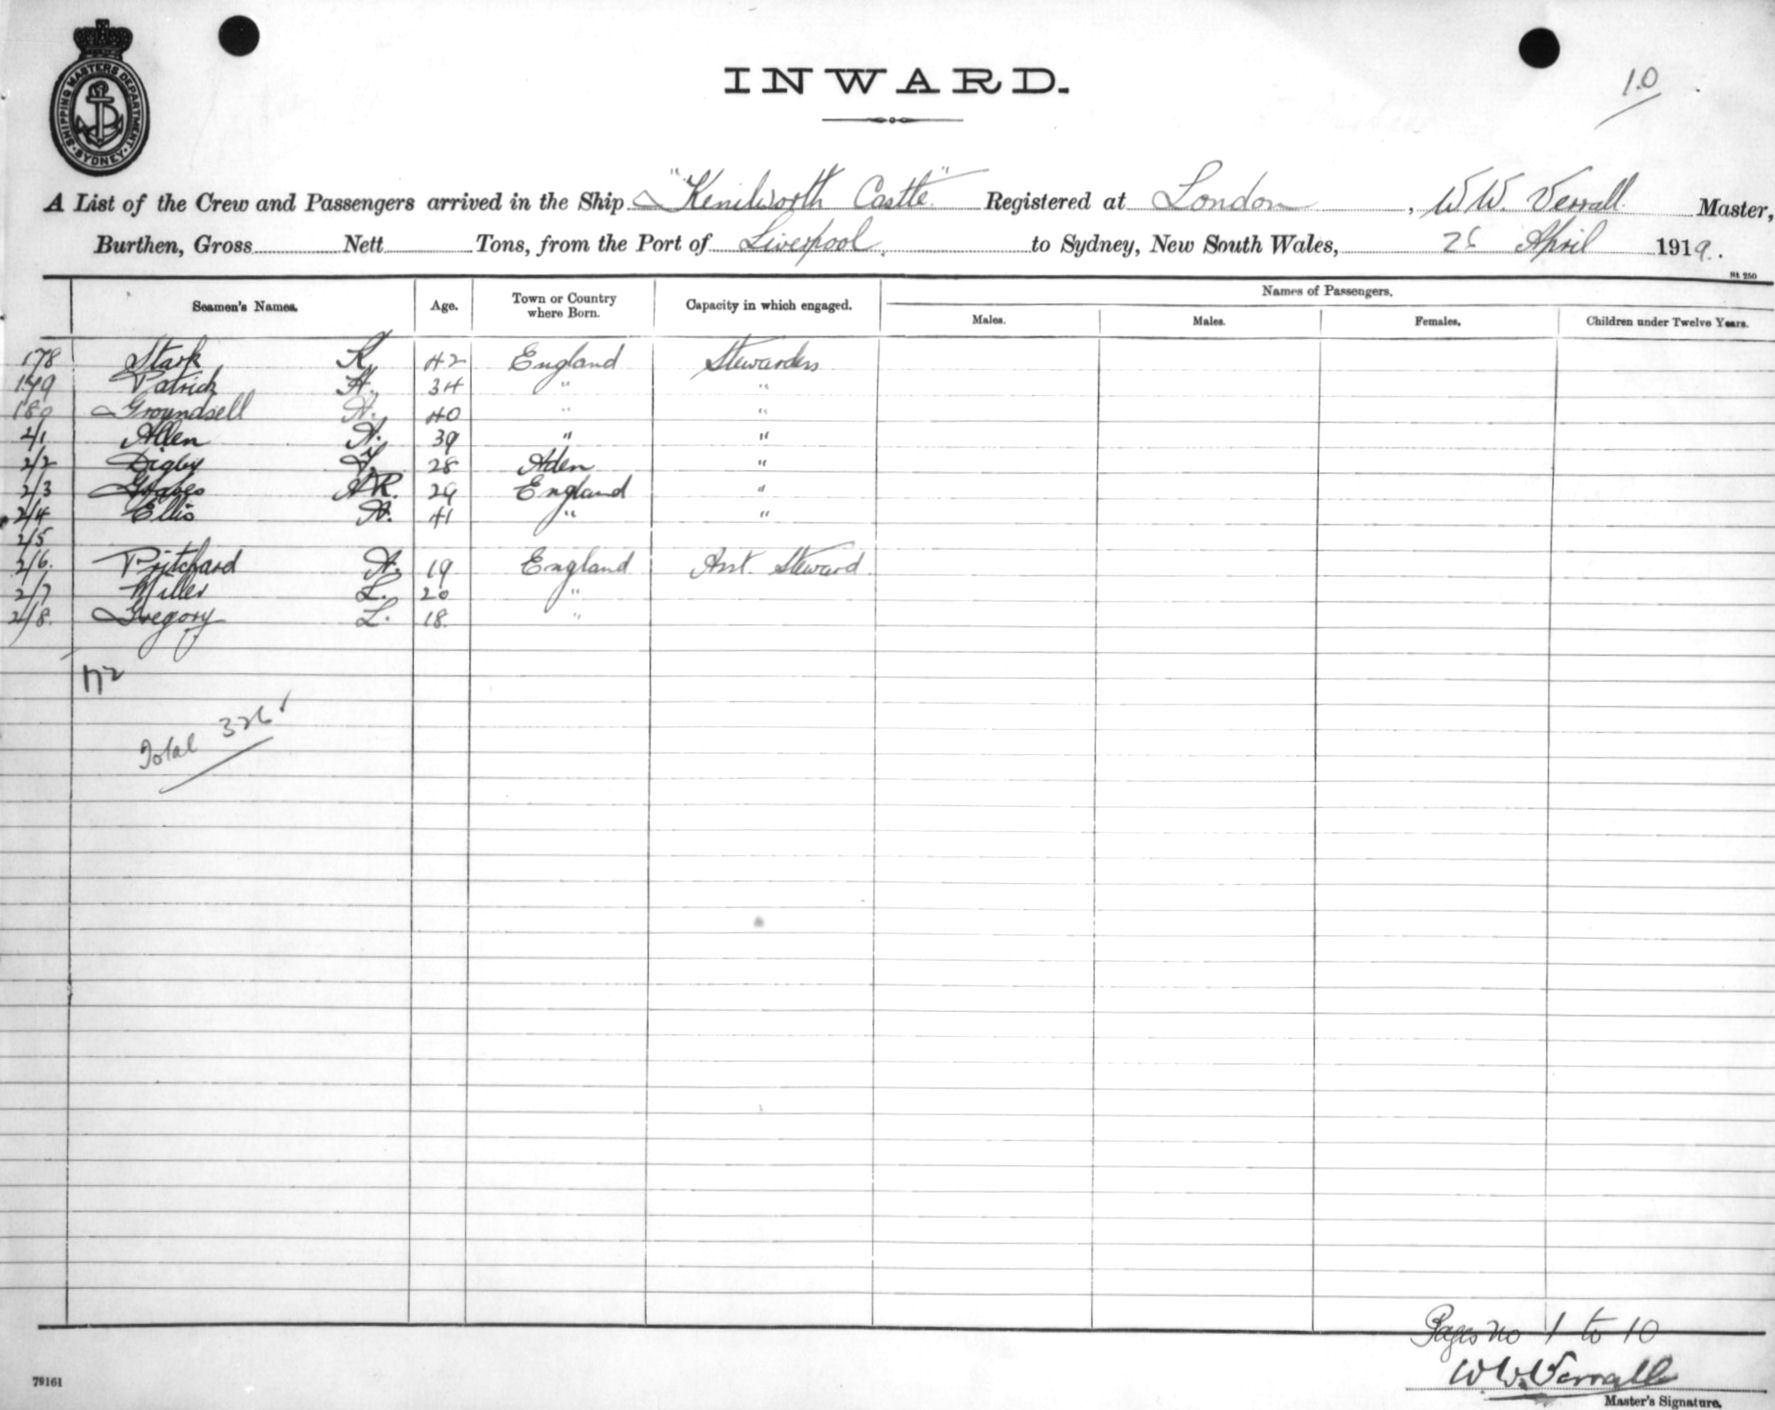 SHIPPING MASTERS DEPARTMENT
SYDNEY
INWARD.
10
A List of the Crew and Passengers arrived in the Ship "Kenilworth Castle" Registered at London, W W. Verrall Master,
Burthen, Gross Nett Tons, from the Port of Liverpool to Sydney, New South Wales, 26 April 1919.
Seamen's Names. Age. Town or Country where Born. Capacity in which engaged. Names of Passengers.
Males. Males. Females. Children under Twelve Years.
178 Stark K. 42 England Stewardess
179 Patrick H. 34 " "
180 Groundsell A. 40 " "
2/1 Allen A. 39 " "
2/2 Digby 28 Aden "
2/3 Graves A R. 29 England "
2/4 Ellis A. 41 " "
2/5
2/6. Pritchard A. 19 England Asst. Steward
2/7 Miller L. 20 "
2/8. Gregory L. 18. "
172
Total 326
Pages no 1 to 10
W W Verrall
79161
Master's Signature.